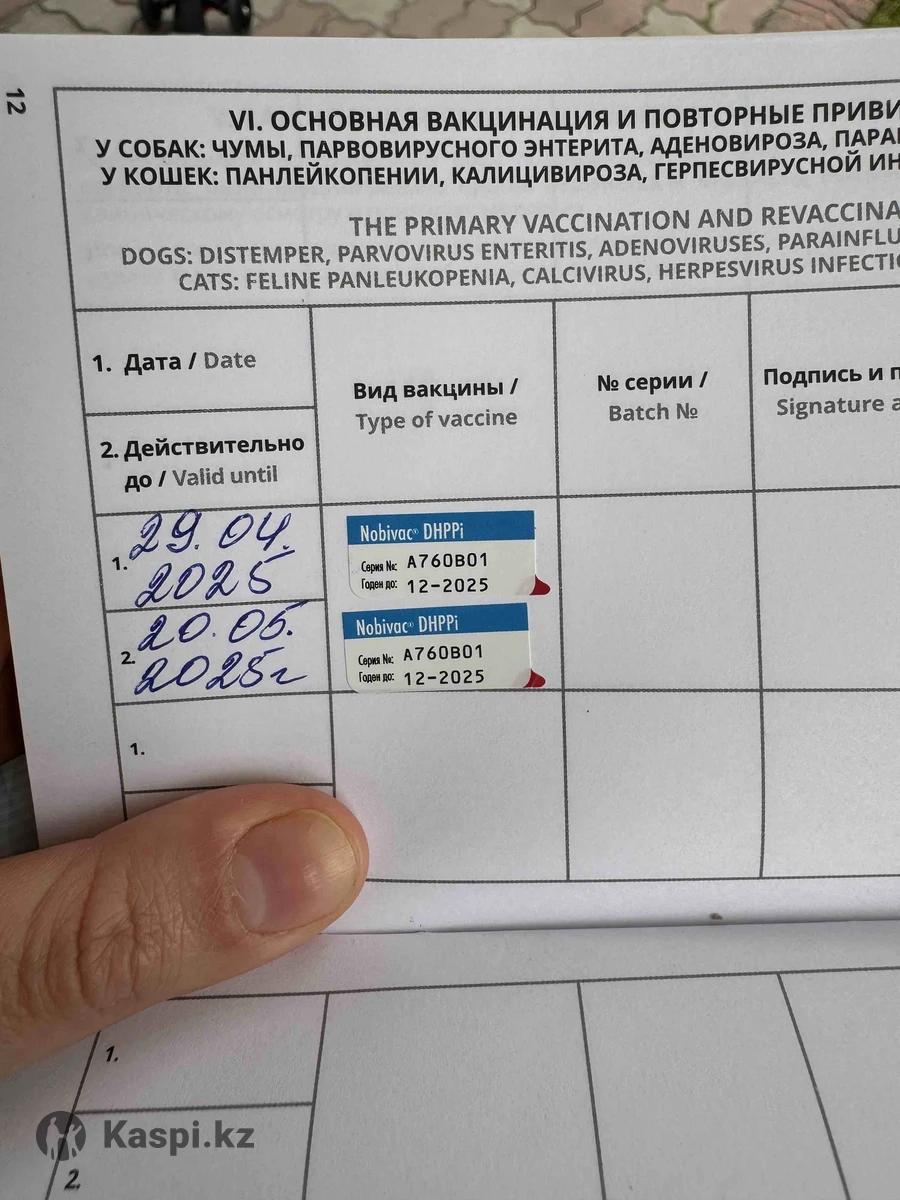 12
VI. ОСНОВНАЯ ВАКЦИНАЦИЯ И ПОВТОРНЫЕ ПРИВИ
У СОБАК: ЧУМЫ, ПАРВОВИРУСНОГО ЭНТЕРИТА, АДЕНОВИРОЗА, ПАРА
У КОШЕК: ПАНЛЕЙКОПЕНИИ, КАЛИЦИВИРОЗА, ГЕРПЕСВИРУСНОЙ ИН
THE PRIMARY VACCINATION AND REVACCINA
DOGS: DISTEMPER, PARVOVIRUS ENTERITIS, ADENOVIRUSES, PARAINFLU
CATS: FELINE PANLEUKOPENIA, CALCIVIRUS, HERPESVIRUS INFECTIO
1. Дата / Date
2. Действительно
до / Valid until
Вид вакцины /
Type of vaccine
№ серии /
Batch №
Подпись и п
Signature a
1. 29.04.
2025
Nobivac® DHPPi
Серия №: A760B01
Годен до: 12-2025
2. 20.05.
2025г
Nobivac® DHPPi
Серия №: A760B01
Годен до: 12-2025
1.
1.
2.
Kaspi.kz